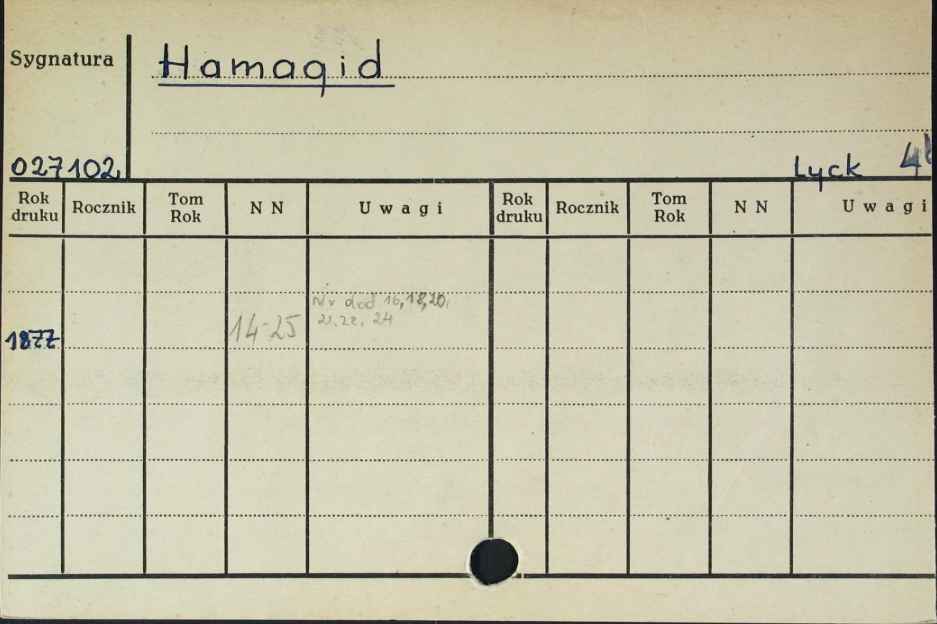 Sygnatura
Hamagid
027102
Lyck 4
Rok druku Rocznik Tom Rok N N Uwagi Rok druku Rocznik Tom Rok N N Uwagi
Nr dod 16, 18, 20,
1877 14-25 21, 22, 24